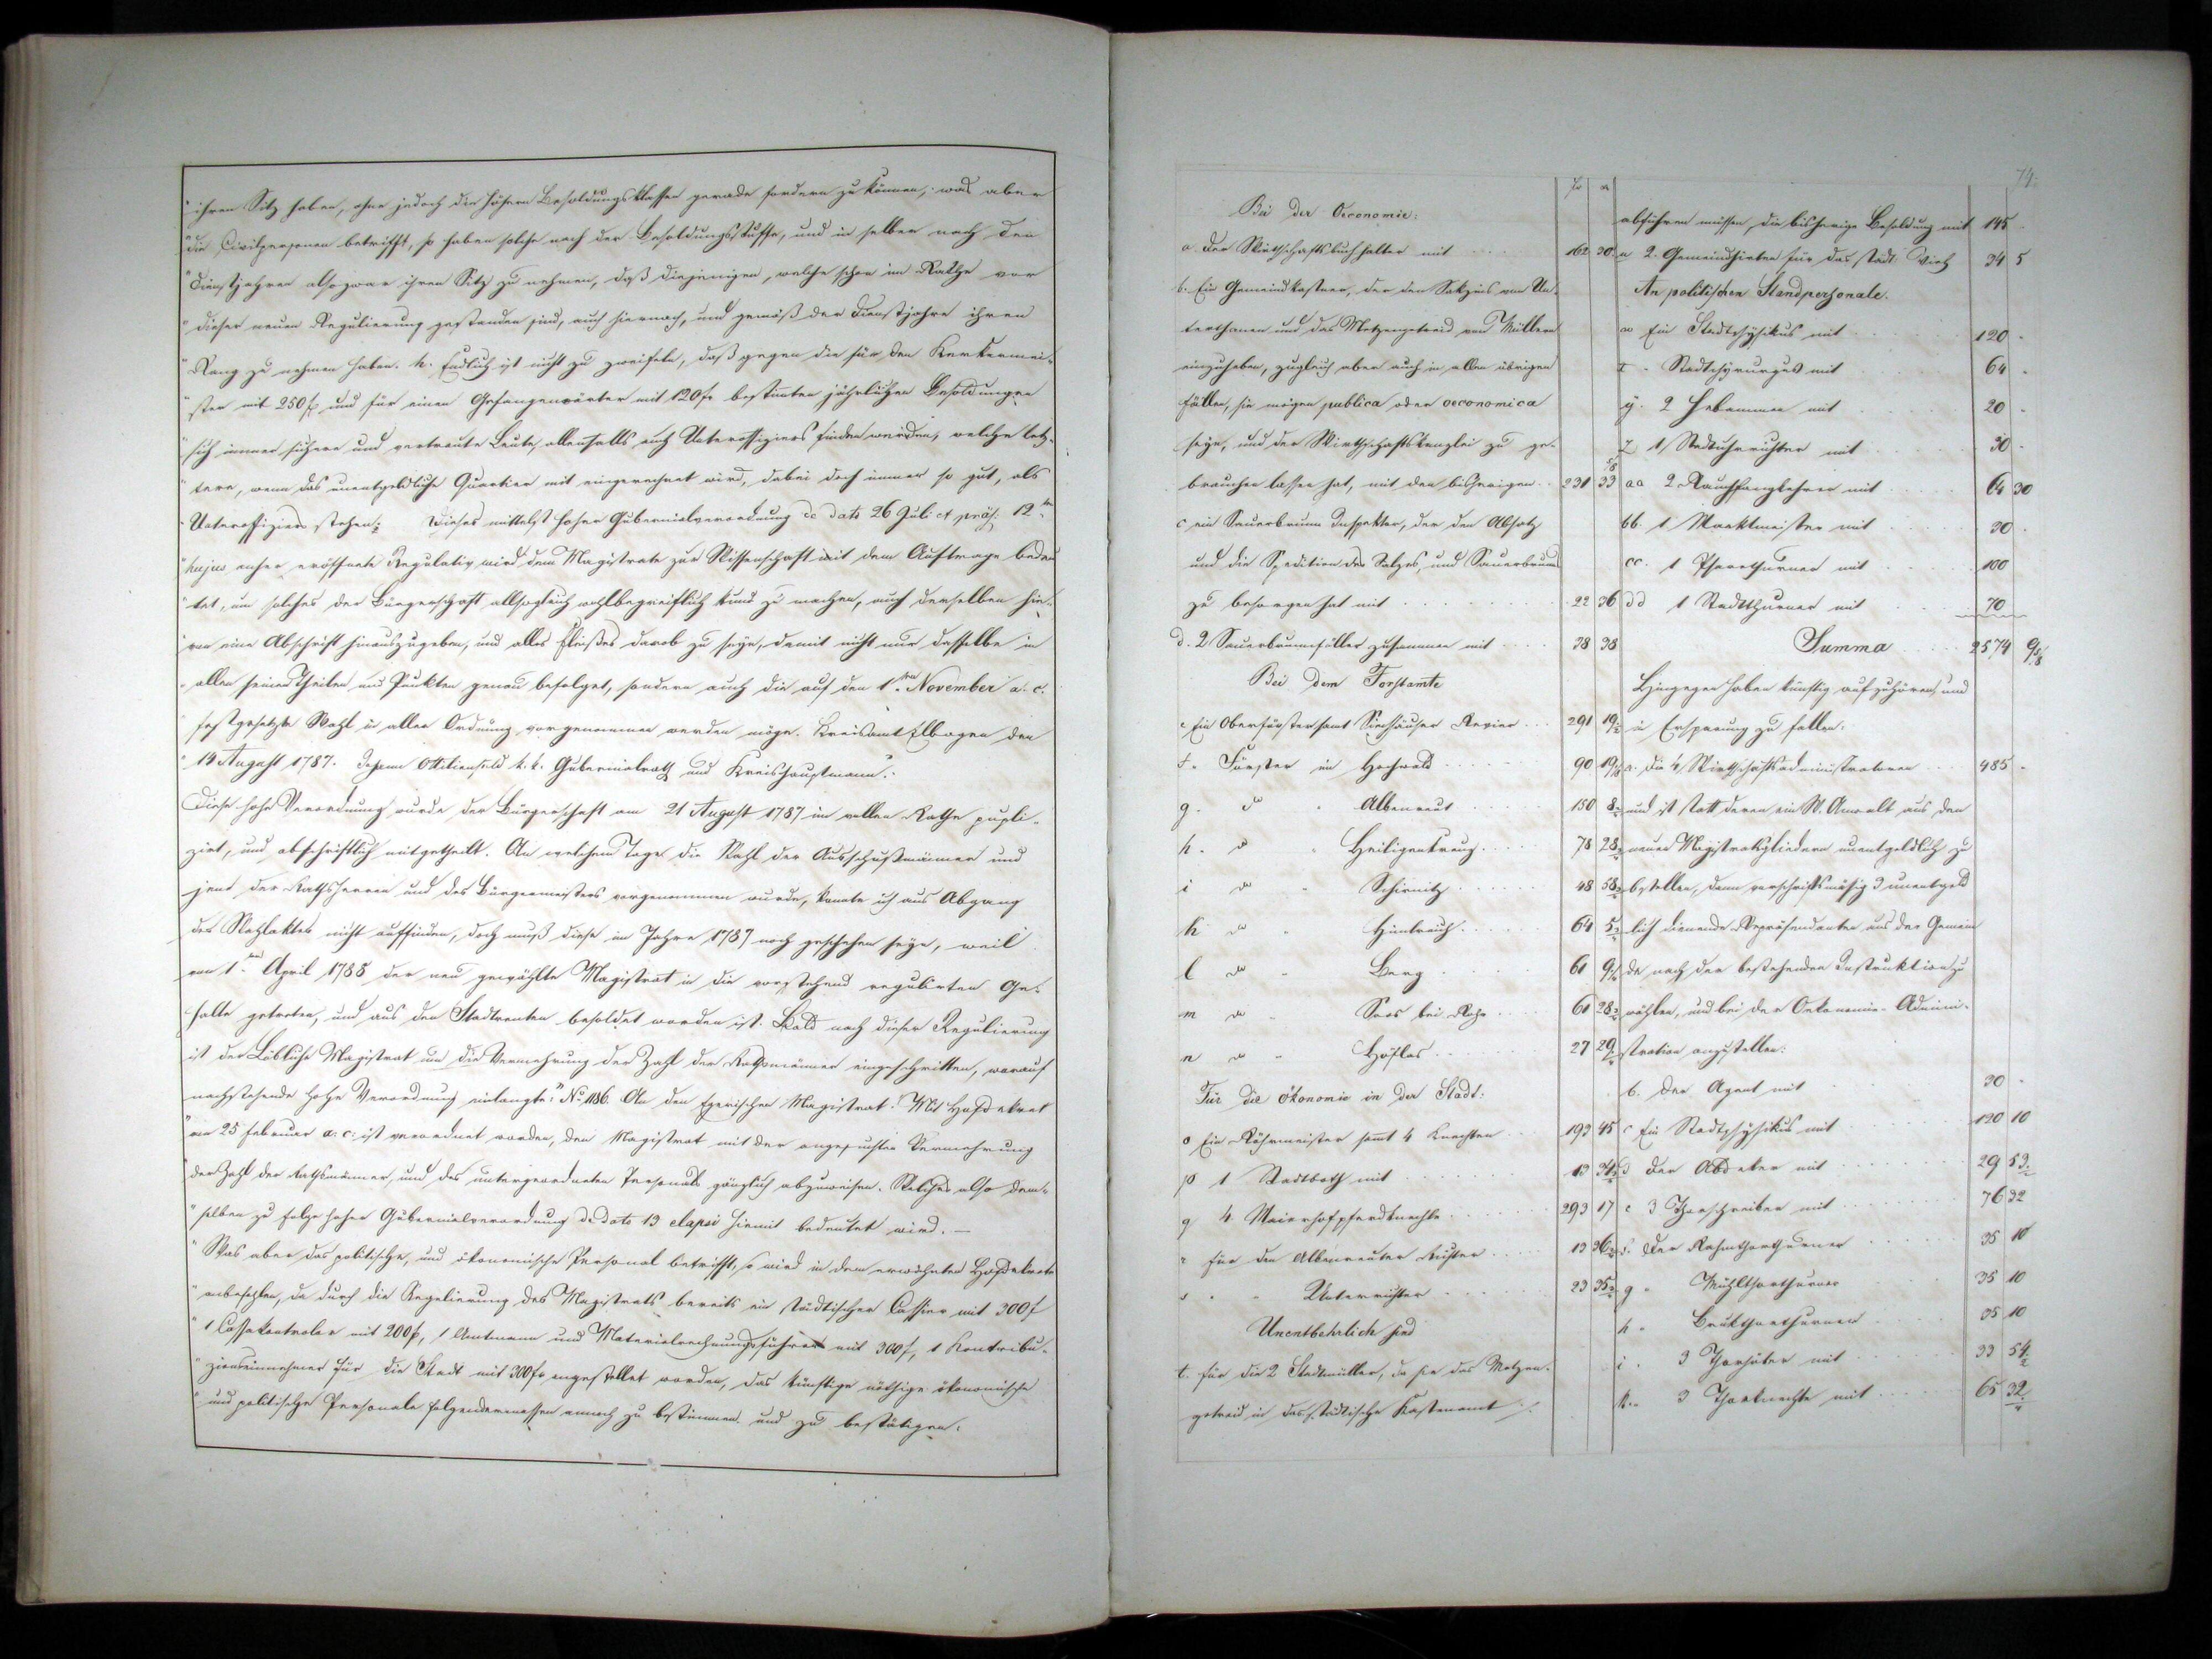 "ihren Sitz haben, ohne jedoch die höhern Besoldungsklassen gerade fordern zu können; was aber
"die Civilpersonen betrifft, so haben solche nach der Besoldungsstuffe, und in selber nach den
"Dienstjahren also zwar ihren Sitz zu nehmen, daß diejenigen, welche schon im Rathe vor
"dieser neuen Regulierung gestanden sind, auch hiernach, und gemäß der Dienstjahre ihren
"Rang zu nehmen haben. k. Endlich ist nicht zu zweifeln, daß gegen die für den Kerkermei-
"ster mit 250 f und für einen Gefangenwärter mit 120 fr bestimten jährlichen Besoldungen
"sich immer sichere und vertraute Leute, allenfalls auch Unteroffiziers finden werden, welche letz-
"tere, wenn das unentgeldliche Quartier mit eingerechnet wird, dabei doch immer so gut, als
"Unteroffiziere stehen; Dieses mittelst hoher Gubernialverordnung de dato 26 Juli et präs: 12ten
"hujus anher eröffnete Regulativ wird dem Magistrate zur Wissenschaft mit dem Auftrage bedeu
"tet, um solches der Bürgerschaft allsogleich wohlbegreiflich kund zu machen, auch derselben hie-
"von eine Abschrift hinauszugeben, und alles Fleißes darob zu seye, damit nicht nur dasselbe in
"allen seinen Theilen und Punkten genau befolget, sondern auch die auf den 1ten November a. c.
"festgesetzte Wahl in aller Ordnung vorgenommen werden möge. Kreisamt Elbogen den
"13 August 1787. Johann Ottilienfeld k. k. Gubernialrath und Kreishauptmann".
Diese hohe Verordnung wurde der Bürgerschaft am 21 August 1787 im vollen Rathe publi-
zirt, und abschriftlich mitgetheilt. An welchem Tage die Wahl der Ausschußmänner und
jene der Rathsherren und des Bürgermeisters vorgenommen wurde, konnte ich aus Abgang
des Wahlaktes nicht auffinden, doch muß diese im Jahre 1787 noch geschehen seyn, weil
vom 1ten April 1788 der neu gewählte Magistrat in die vorstehend regulirten Ge-
halte getreten, und aus den Stadtrenten besoldet worden ist. Bald nach dieser Regulierung
ist der Löbliche Magistrat um die Vermehrung der Zahl der Rathsmänner eingeschritten, worauf
nachstehende hohe Verordnung einlangte: "No. 1186. An den Egerischen Magistrat. Mit Hofdekret
"vom 25 Februar a. c: ist verordnet worden, den Magistrat mit der angesuchten Vermehrung
"der Zahl der Rathsmänner, und des untergeordneten Personals gänzlich abzuweisen. Welches also dem-
"selben zu folge hoher Gubernialverordnung de dato 13 elapsi hiemit bedeutet wird. —
"Was aber das politische, und ökonomische Personal betrifft, so wird in dem erwähnten Hofdekrete
"anbefohlen, da durch die Regulierung des Magistrats bereits ein städtischer Cassier mit 300 f
"1 Cassakontrolor mit 200 f, 1 Amtmann und Materialrechnungsführer mit 300 f, 1 Kontribu-
"zionseinnehmer für die Stadt mit 300 fr angestellet worden, das künftige nöthige ökonomische
"und politische Personale folgendermassen annoch zu bestimmen und zu bestätigen:
74.
Bei der Oeconomie:
a. der Wirthschaftsbuchhalter mit . . . . 162 30.
b. Ein Gemeindkastner, der den Sakzins von Un-
terthanen und das Metzengetreid von Müllern
einzuheben, zugleich aber auch in allen übrigen
Fällen, sie mögen publica oder oeconomica
seyn, und der Wirthschaftskanzlei zu ge-
brauchen lassen hat, mit den bisherigen . . 231 33 5/8
c ein Sauerbrunn Inspektor, der den Absatz
und die Spedition des Salzes, und Sauerbrunns
zu besorgen hat mit . . . . . . 22 36
d. 2 Sauerbrunnfüller zusammen mit . . . . 38 38
Bei dem Forstamte
e Ein Oberförster samt Siechhäuser Revier . . . 291 19 1/2
f. Förster im Hochwald . . . . . 90 19
g. do " Albenreut . . . . . 150 8
h. do " Heiligenkreuz . . . . 78 28
i do " Schirnitz . . . . . 48 58
k do " Hinterich . . . . . 64 5
l do " Berg . . . . . 61 9
m do " Soos bei Rohr . . . 61 28
n do " Höflas . . . . . 27 29
Für die ökonomie in der Stadt:
o Ein Röhrmeister samt 4 Knechten . . . 193 45
p 1 Stadtboth mit . . . . . . 13 34
q 4 Maierhofpferdknechte . . . . . . 293 17
r für den Albenreuter Richter . . . . 13 36
s " " Unterrichter . . . . . 23 35
Unentbehrlich sind
t. für die 2 Stadtmüller, da sie das Metzen-
getreid in das städtische Kastenamt
abführen müssen, die bisherige Besoldung mit 145.
u 2. Gemeindhirten für das Stadt Vieh 34 5
An politischen Standpersonale.
w Ein Stadtphysikus mit . . . . 120 -
x - Stadtchyrurgus mit . . . . 64 -
y. 2 Hebammen mit . . . . 20 -
z 1 Stadtuhrrichter mit . . . . 30 -
aa 2 Rauchfangkehrer mit . . . . 64 30
bb. 1 Marktmeister mit . . . . 30 -
cc. 1 Pfarrthurner mit . . . . 100
dd 1 Stadtthurner mit . . . . 70
Summa . . . . 2574 9 5/8
Hingegen haben künftig aufzuhören, und
in Ersparung zu fallen:
a. die 4 Wirthschaftsadministratoren . . 485 -
und ist statt deren ein W. Anwalt aus den
neuen Magistratsgliedern unentgeldlich zu
bestellen, dann vorschriftsmäsig 3 unentgeld
lich dienende Repräsendanten aus der Gemein
de nach der bestehenden Instruktion zu
wählen, und bei der Oekonomie-Admini-
stration anzustellen:
b. der Agent mit . . . . 30 -
c Ein Stadtphysikus mit . . . . 120 10
d der Abdeker mit . . . . 29 53
e 3 Thorschreiber mit . . . . 76 32
f. Der Rahmthorthurner . . . . 35 10
g " Mühlthorthurner . . . . 35 10
h " Brukthorthurner . . . . 35 10
i . 3 Thorhüter mit . . . . 33 54
k. . 3 Thorknechte mit . . . . 65 32